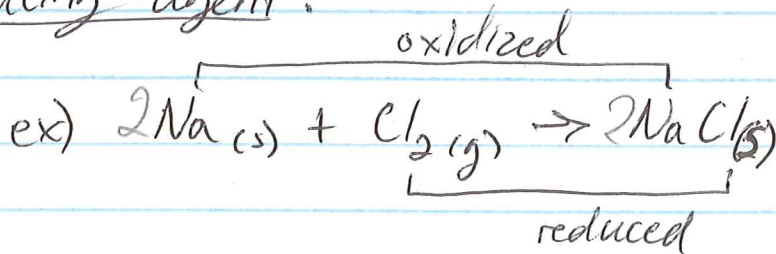 agent.
oxidized
ex) 2Na(s) + Cl2(g) → 2NaCl(s)
reduced